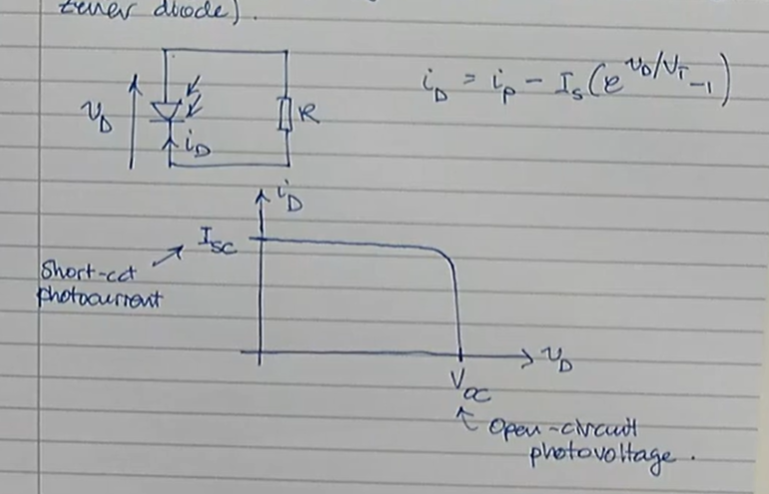 zener diode).
i_D = i_p - I_s(e^{v_D/V_T} -1)
v_D
R
i_D
i_D
I_SC
Short-cct
photocurrent
v_D
V_OC
Open-circuit
photovoltage.